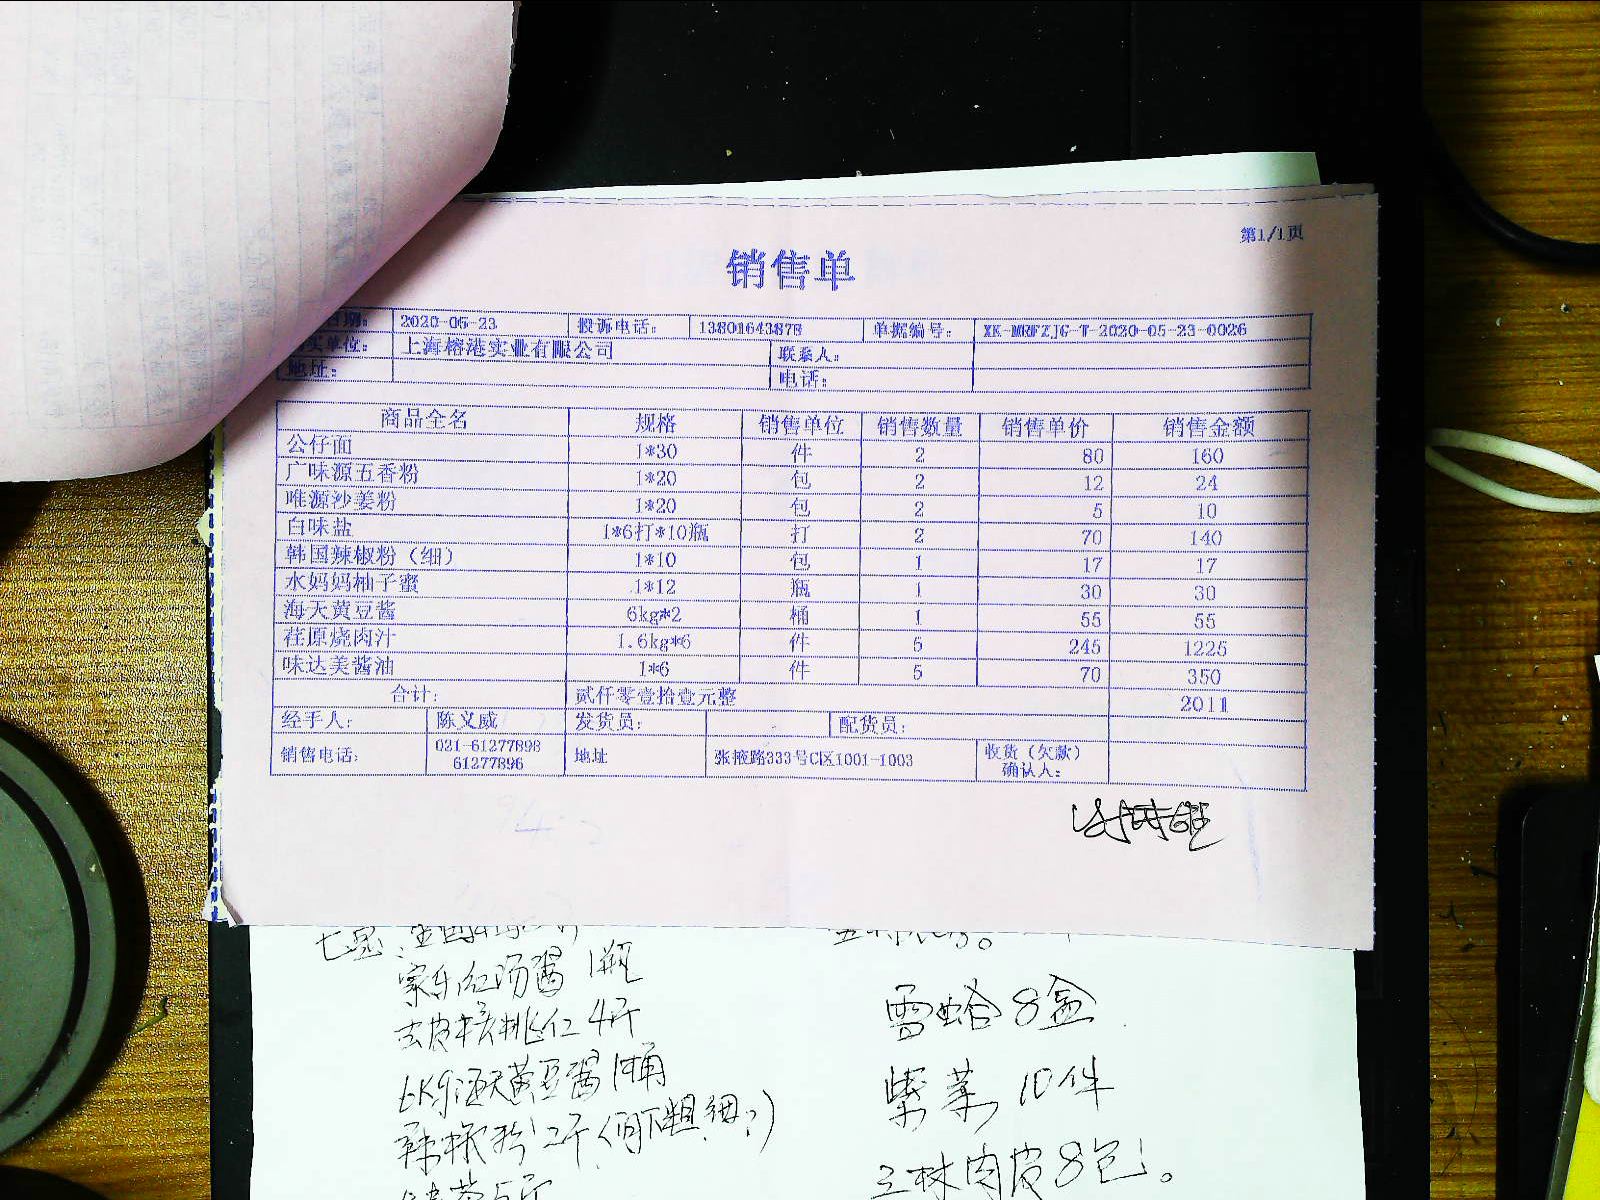 第1/1页
销售单
日期： 2020-05-23 投诉电话： 13801643878 单据编号： XK-MRFZJG-T-2020-05-23-0026
买单位： 上海榕港实业有限公司 联系人：
地址： 电话：
商品全名 规格 销售单位 销售数量 销售单价 销售金额
公仔面 1*30 件 2 80 160
广味源五香粉 1*20 包 2 12 24
唯源沙姜粉 1*20 包 2 5 10
白味盐 1*6打*10瓶 打 2 70 140
韩国辣椒粉（细） 1*10 包 1 17 17
水妈妈柚子蜜 1*12 瓶 1 30 30
海天黄豆酱 6kg*2 桶 1 55 55
荏原烧肉汁 1.6kg*6 件 5 245 1225
味达美酱油 1*6 件 5 70 350
合计： 贰仟零壹拾壹元整 2011
经手人： 陈义威 发货员： 配货员：
销售电话： 021-61277898 61277896 地址 张掖路333号C区1001-1003 收货（欠款）确认人：
家乐红汤酱 1瓶
雪蛤 8盒
去皮核桃仁 4斤
6Kg海天黄豆酱 1桶
紫菜 10件
辣椒粉 2斤(问下粗.细?)
三林肉皮 8包。